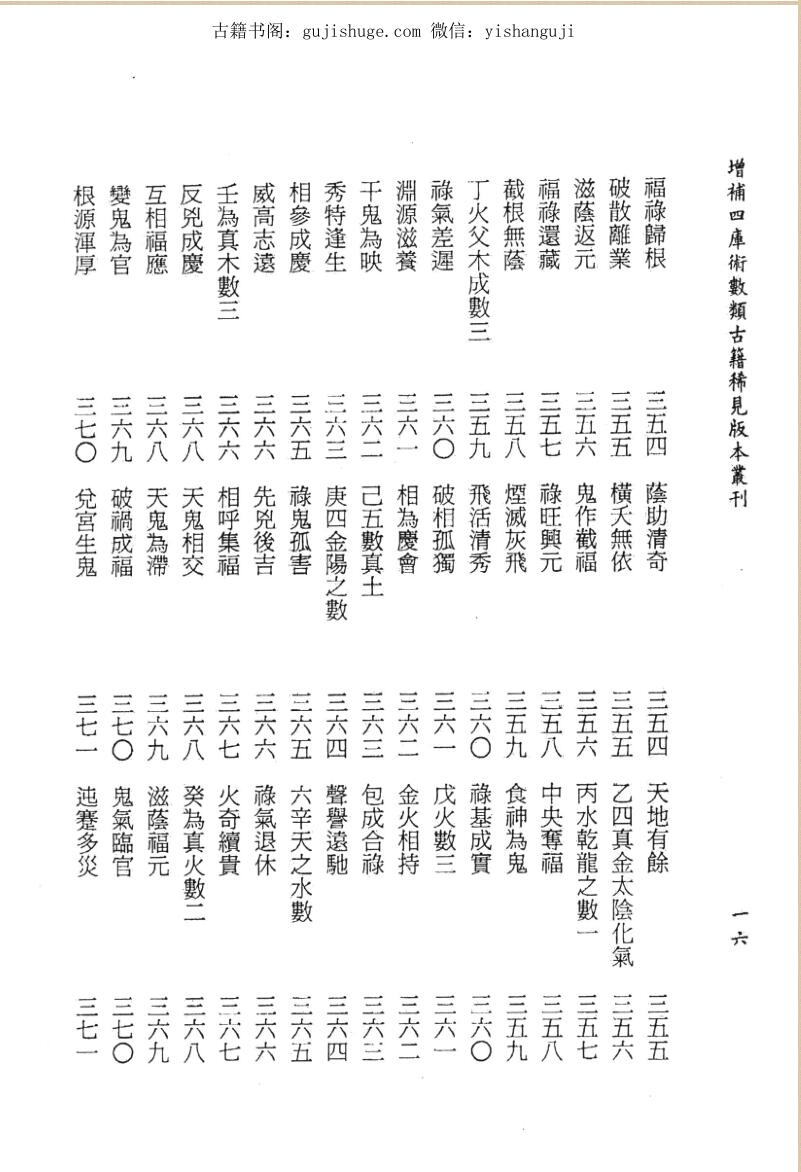 古籍书阁：gujishuge.com 微信：yishanguji
增補四庫術數類古籍稀見版本叢刊
一六
福祿歸根 三五四 蔭助清奇 三五四 天地有餘 三五五
破散離業 三五五 橫夭無依 三五五 乙四真金太陰化氣 三五六
滋蔭返元 三五六 鬼作截福 三五六 丙水乾龍之數一 三五七
福祿還藏 三五七 祿旺興元 三五八 中央奪福 三五八
截根無蔭 三五八 煙滅灰飛 三五九 食神為鬼 三五九
丁火父木成數三 三五九 飛活清秀 三六〇 祿基成實 三六〇
祿氣差遲 三六〇 破相孤獨 三六一 戊火數三 三六一
淵源滋養 三六一 相為慶會 三六二 金火相持 三六二
干鬼為映 三六二 己五數真土 三六三 包成合祿 三六三
秀特逢生 三六三 庚四金陽之數 三六四 聲譽遠馳 三六四
相參成慶 三六五 祿鬼孤害 三六五 六辛天之水數 三六五
威高志遠 三六六 先兇後吉 三六六 祿氣退休 三六六
壬為真木數三 三六六 相呼集福 三六七 火奇續貴 三六七
反兇成慶 三六八 天鬼相交 三六八 癸為真火數二 三六八
互相福應 三六八 天鬼為滯 三六九 滋蔭福元 三六九
變鬼為官 三六九 破禍成福 三七〇 鬼氣臨官 三七〇
根源渾厚 三七〇 兌宮生鬼 三七一 迍蹇多災 三七一